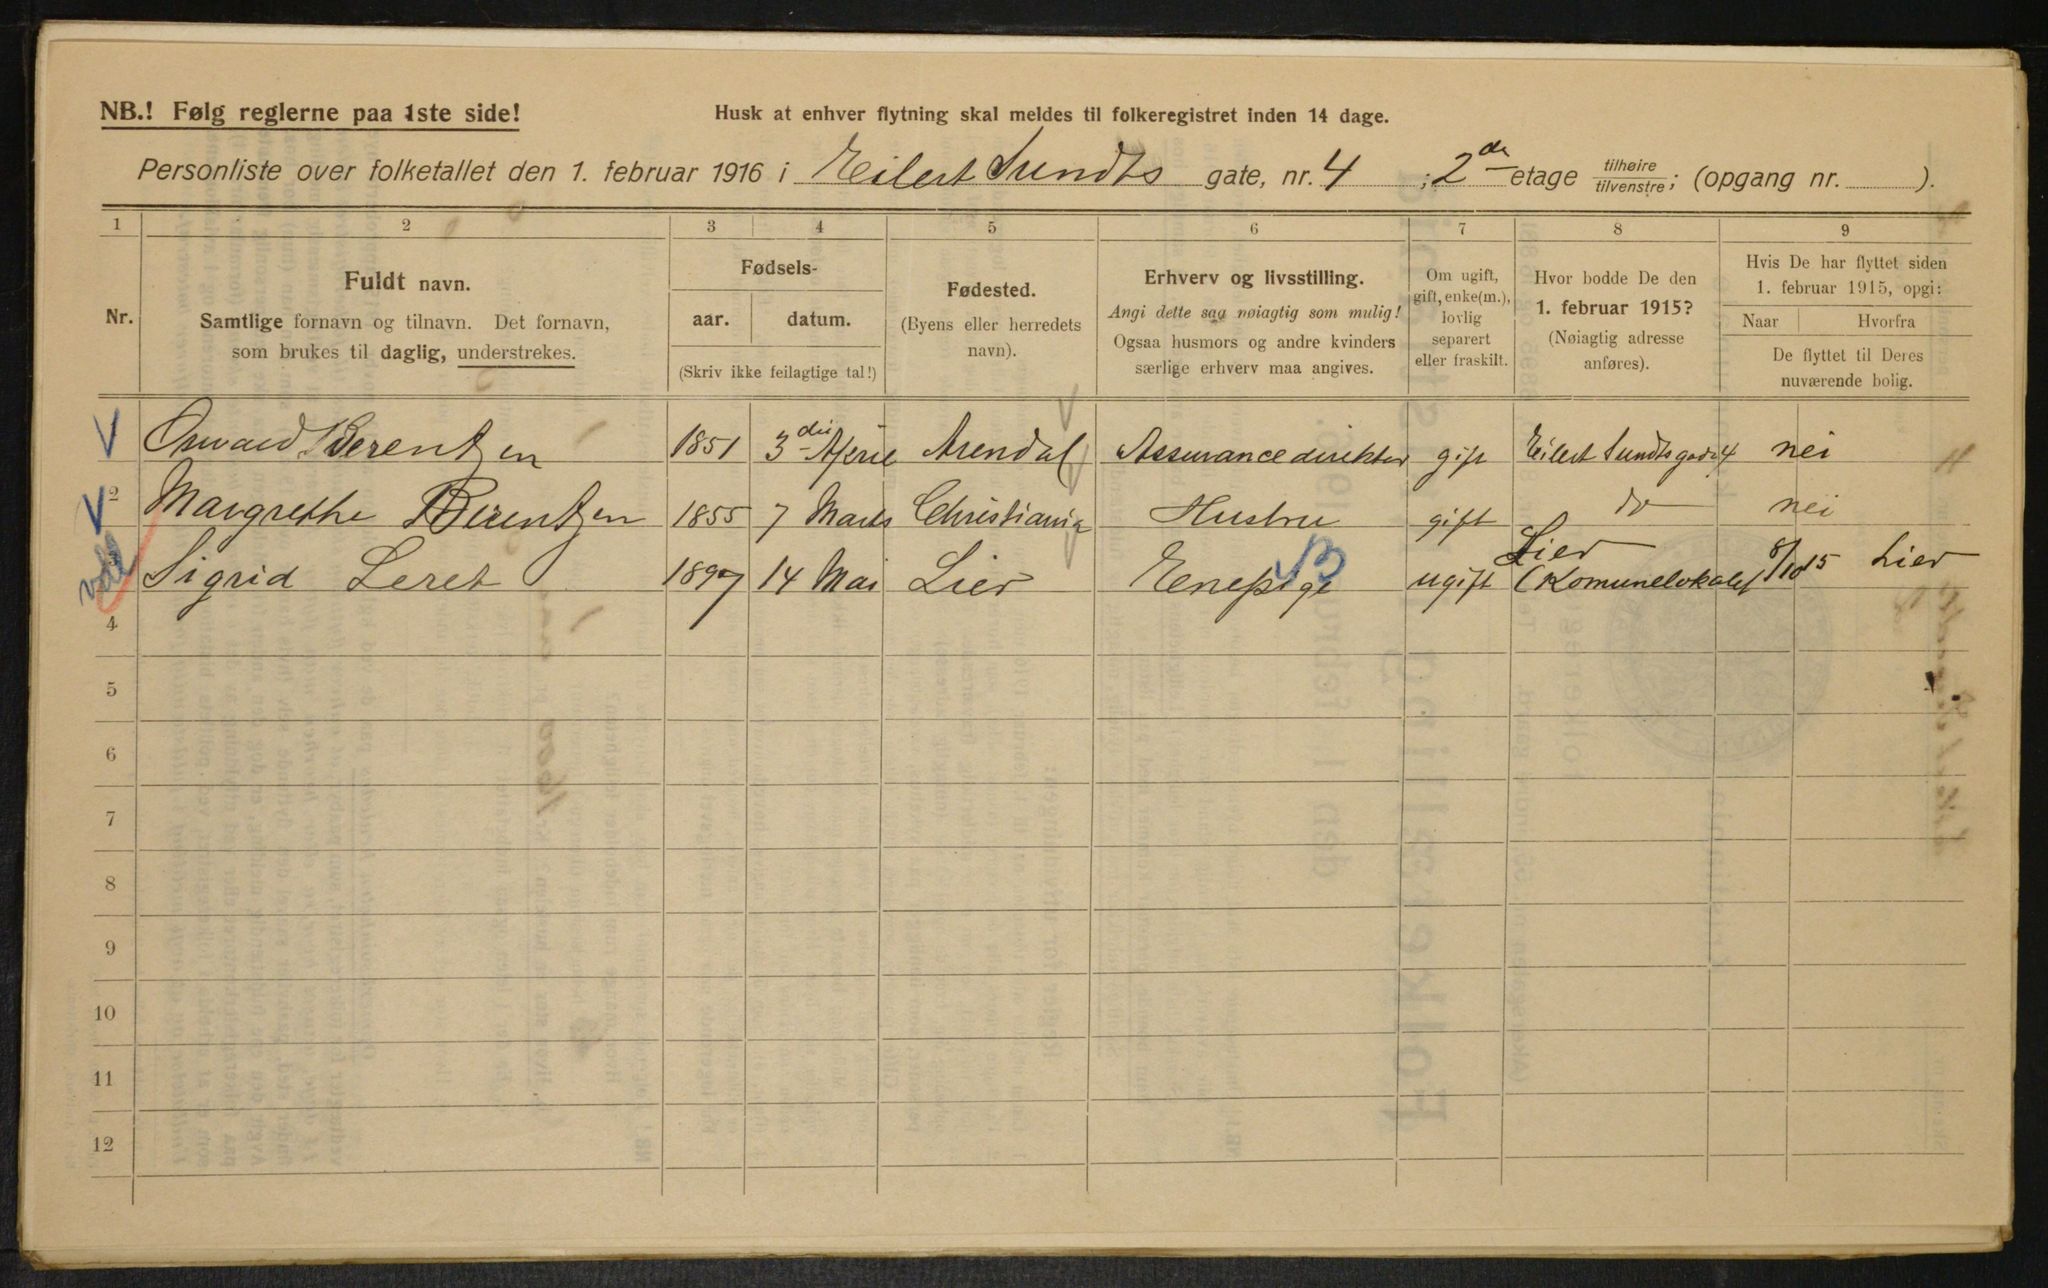 NB.! Følg reglerne paa 1ste side!
Husk at enhver flytning skal meldes til folkeregistret inden 14 dage.
Personliste over folketallet den 1. februar 1916 i Eilert Sundts gate, nr. 4 ; 2de etage tilhøire/tilvenstre; (opgang nr. ).
1 2 3 4 5 6 7 8 9
Nr.
Fuldt navn.
Samtlige fornavn og tilnavn. Det fornavn,
som brukes til daglig, understrekes.
Fødsels-
aar. datum.
(Skriv ikke feilagtige tal!)
Fødested.
(Byens eller herredets
navn).
Erhverv og livsstilling.
Angi dette saa nøiagtig som mulig!
Ogsaa husmors og andre kvinders
særlige erhverv maa angives.
Om ugift,
gift, enke(m.),
lovlig
separert
eller fraskilt.
Hvor bodde De den
1. februar 1915?
(Nøiagtig adresse
anføres).
Hvis De har flyttet siden
1. februar 1915, opgi:
Naar Hvorfra
De flyttet til Deres
nuværende bolig.
Osvald Berentzen 1851 3die April Arendal Assurancedirektør gift Eilert Sundtsgade 4 nei
2 Margrethe Berentzen 1855 7 Marts Christiania Hustru gift do nei
3 Sigrid Leret 1897 14 Mai Lier Enepige ugift Lier (Komunelokalet 8/10 15 Lier
4
5
6
7
8
9
10
11
12